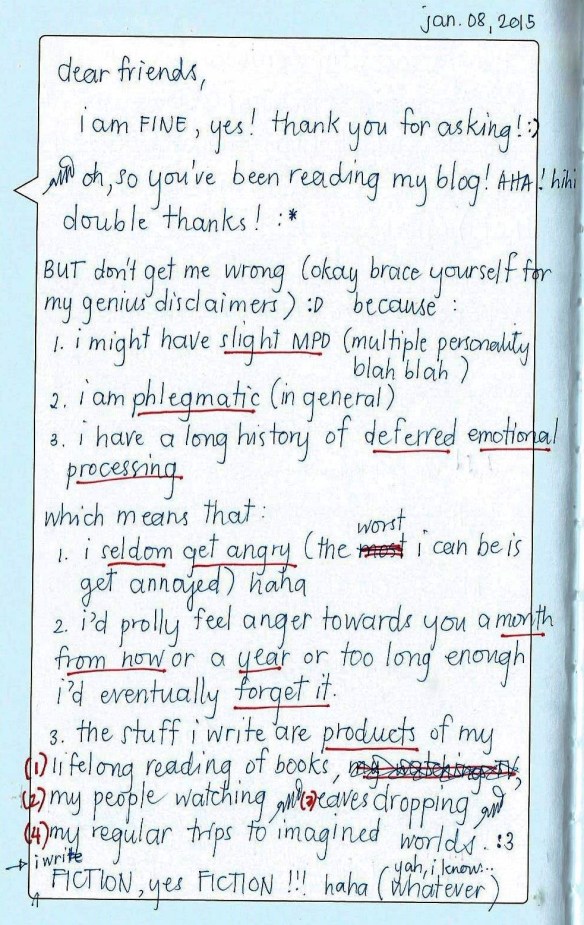 jan. 08, 2015
dear friends,
i am FINE, yes! thank you for asking! :)
and oh, so you've been reading my blog! AHA! hihi
double thanks! :*
BUT don't get me wrong (okay brace yourself for
my genius disclaimers) :D because :
1. i might have slight MPD (multiple personality
blah blah)
2. i am phlegmatic (in general)
3. i have a long history of deferred emotional
processing
which means that :
worst
1. i seldom get angry (the most i can be is
get annoyed) haha
2. i'd prolly feel anger towards you a month
from now or a year or too long enough
i'd eventually forget it.
3. the stuff i write are products of my
(1) lifelong reading of books, my watching TV,
(2) my people watching and (3) eavesdropping and
(4) my regular trips to imagined worlds. :3
i write
yah, i know...
FICTION, yes FICTION !!! haha (whatever)